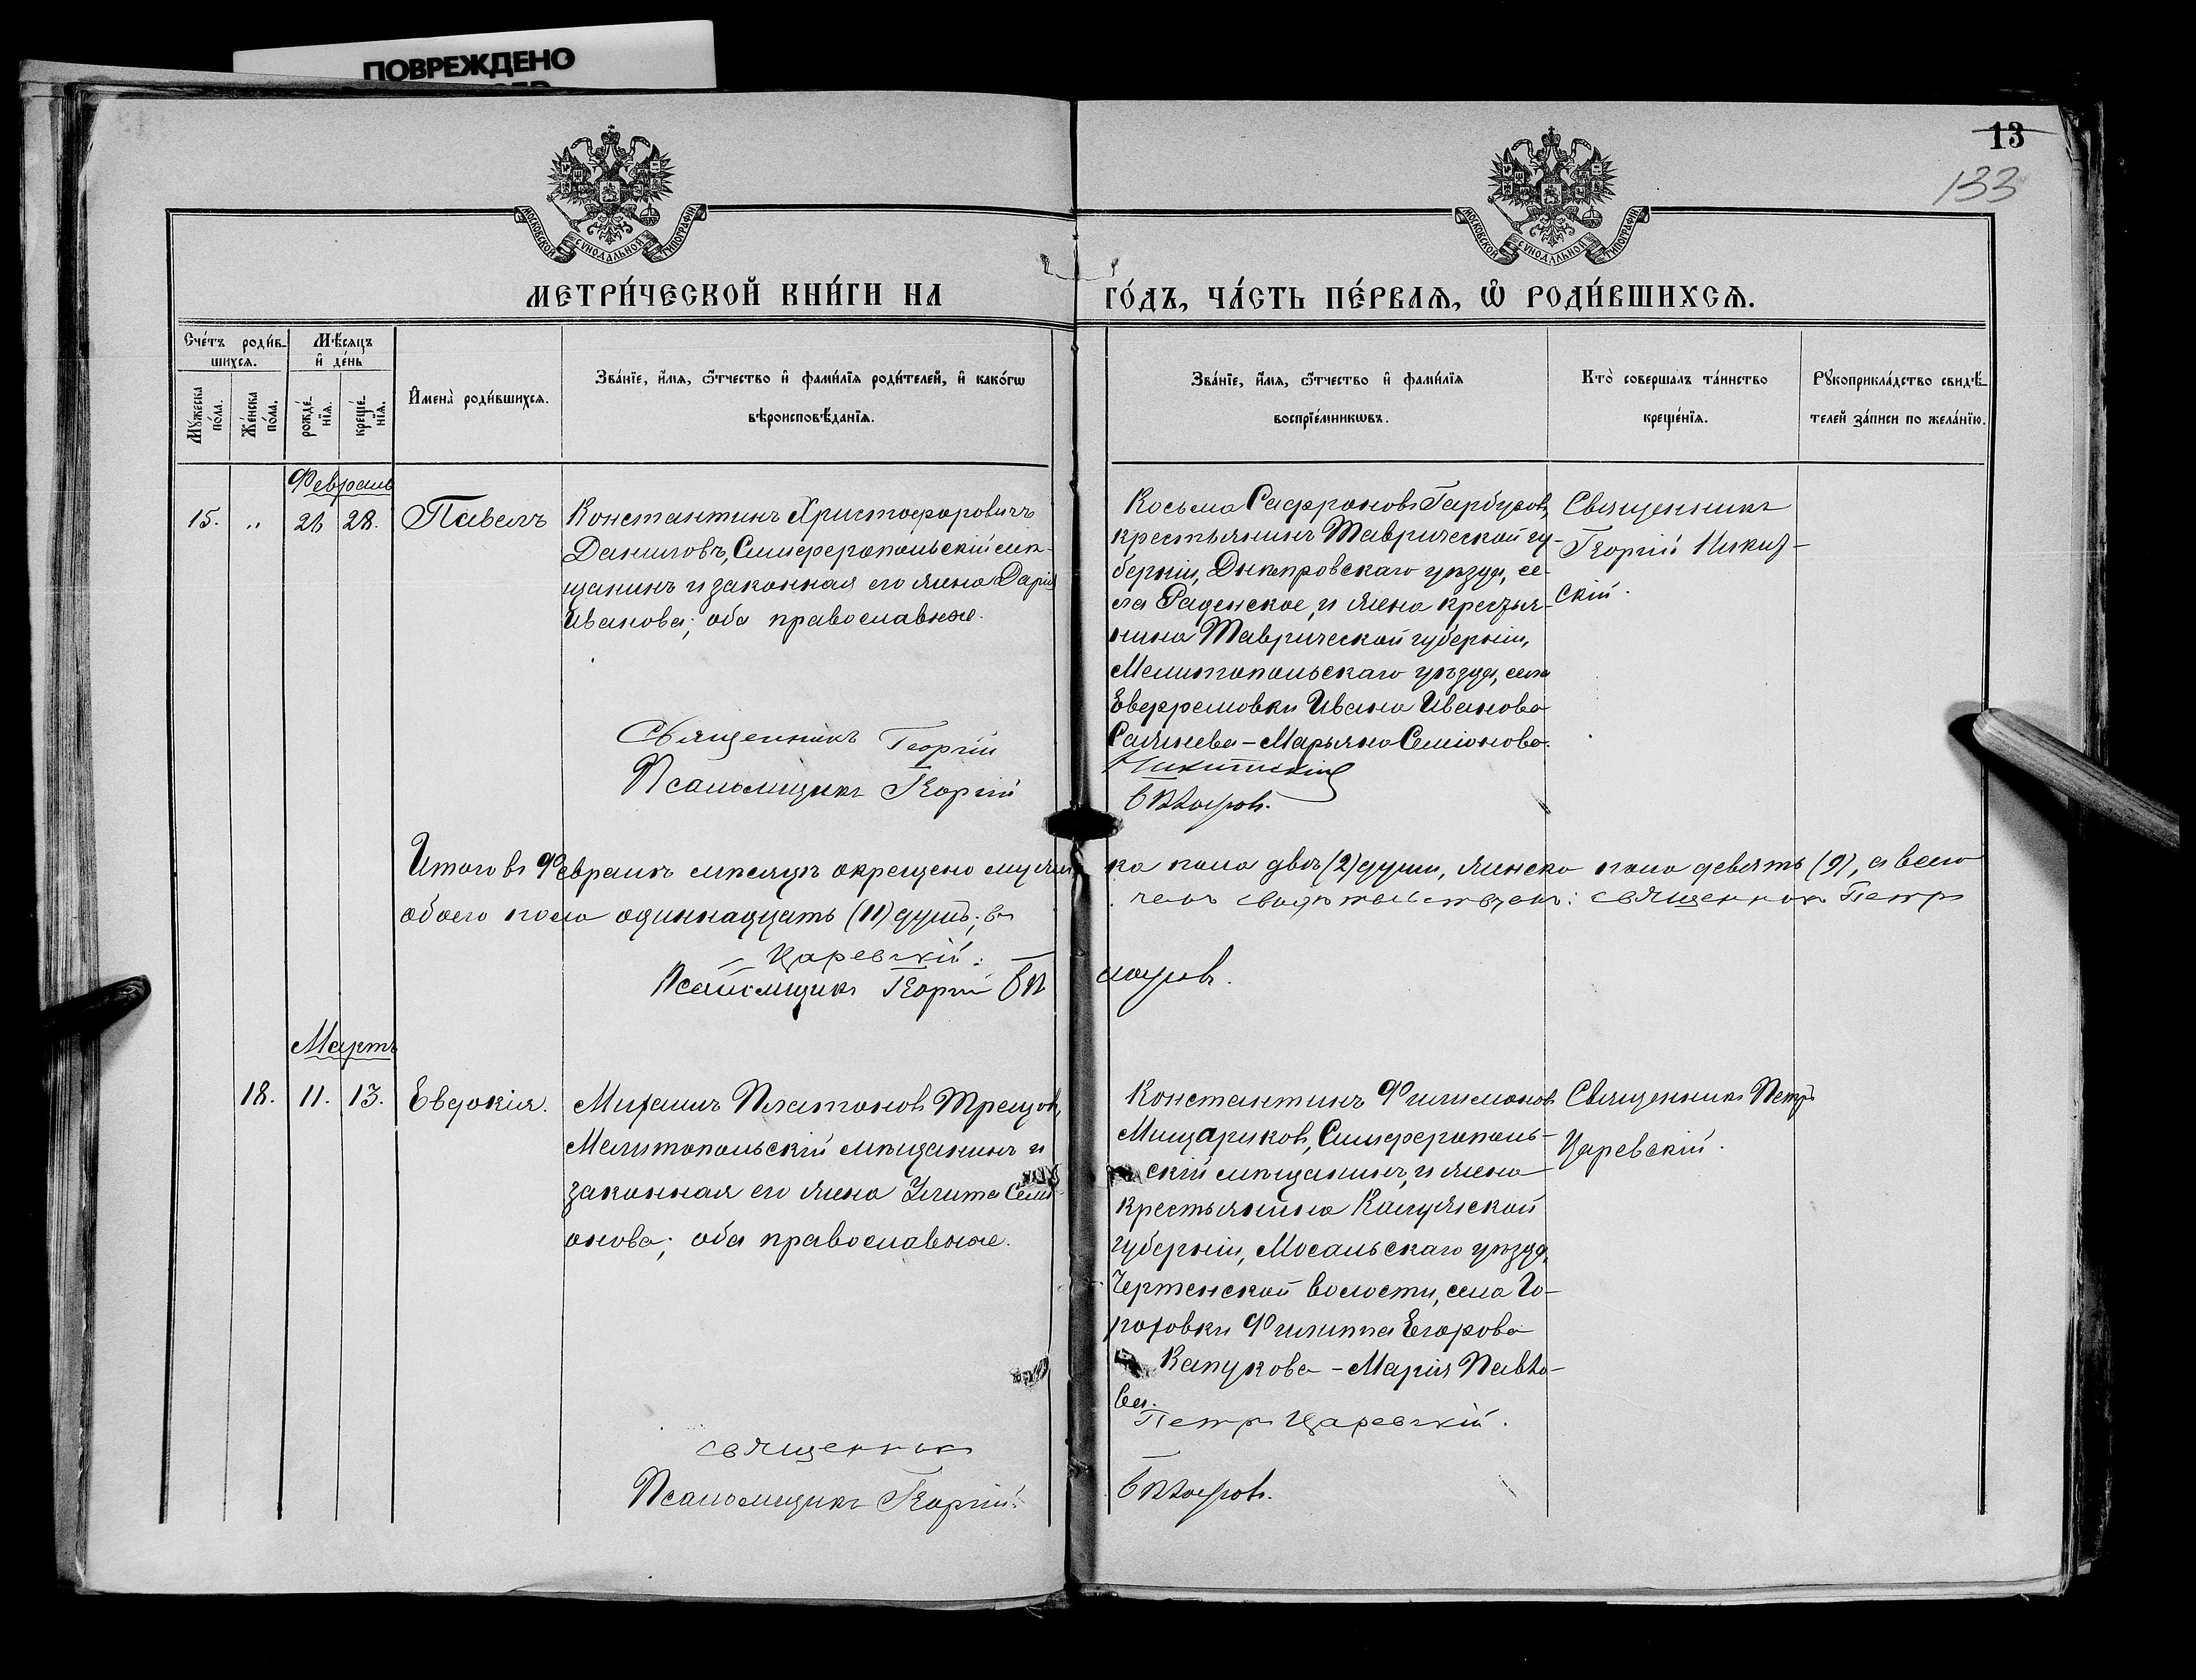 ПОВРЕЖДЕНО
13
133
МОСКОВСКОЙ СѴНОДАЛЬНОЙ ТИПОГРАФІИ
МОСКОВСКОЙ СѴНОДАЛЬНОЙ ТИПОГРАФІИ
МЕТРИ́ЧЕСКОЙ КНИ́ГИ НА ГО́ДЪ, ЧА́СТЬ ПЕ́РВАѦ, Ѡ҆ РОДИ́ВШИХСѦ.
Сче́тъ роди́в-
шихсѧ.
Мѣ́сѧцъ
и҆ де́нь
Мꙋ́жеска
по́ла.
Же́нска
по́ла.
рожде́-
нїѧ.
креще́-
нїѧ.
И҆мена̀ роди́вшихсѧ.
Зва́нїе, и҆́мѧ, ѻ҆́тчество и҆ фами́лїѧ роди́телей, и҆ како́гѡ
вѣроисповѣ́данїѧ.
Зва́нїе, и҆́мѧ, ѻ҆́тчество и҆ фами́лїѧ
воспрїе́мникѡвъ.
Кто̀ соверша́лъ та́инство
креще́нїѧ.
Рꙋкоприкла́дство свидѣ́-
телей за́писи по жела́нїю.
Февраль
15. „ 26 28. Павелъ
Константинъ Христофоровичъ
Даниловъ, Симферопольскій мѣ-
щанинъ и законная его жена Дарія
Иванова; оба православные.
Косьма Сафроновъ Гарбузовъ,
крестьянинъ Таврической гу-
берніи, Днѣпровскаго уѣзда, се-
ла Раденское, и жена крестья-
нина Таврической губерніи,
Мелитопольскаго уѣзда, села
Ефремовки Ивана Иванова
– Марьяна Семіонова.
Священникъ
Георгій Никит-
скій.
Священникъ Георгій Никитскій
Псаломщикъ Георгій
Итого въ Февралѣ мѣсяцѣ окрещено мужеска пола двѣ (2) души, женска пола девять (9), а всего
обоего пола одиннадцать (11) душъ; въ чемъ свидѣтельствуемъ: священникъ Петръ
Царевскій.
Псаломщикъ Георгій
Мартъ
18. 11. 13. Евдокія.
Михаилъ Платоновъ Трещовъ,
Мелитопольскій мѣщанинъ и
законная его жена Улита Семі-
онова; оба православные.
Константинъ Филимоновъ
Мищариковъ, Симферополь-
скій мѣщанинъ, и жена
крестьянина Калужской
губерніи, Мосальскаго уѣзда,
Чертенской волости, села Го-
роховки Филиппа Егорова
Капукова – Марія Павло-
ва.
Священникъ Петръ
Царевскій.
священникъ Петръ Царевскій.
Псаломщикъ Георгій